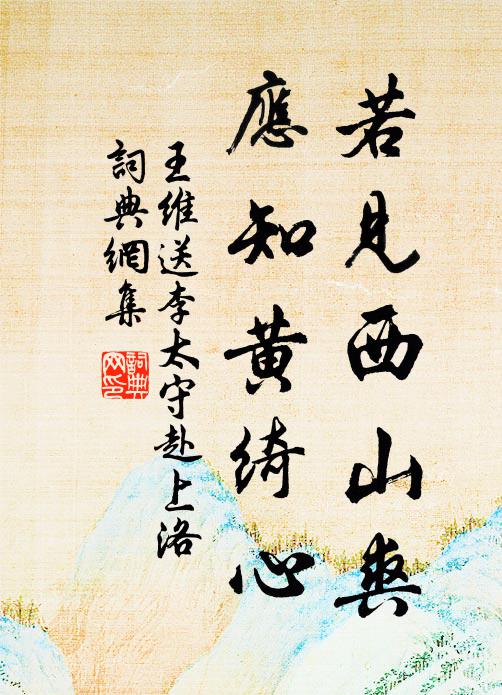 若見西山爽
應知黄綺心
王維送李太守赴上洛
詞典網集
詞典
网印